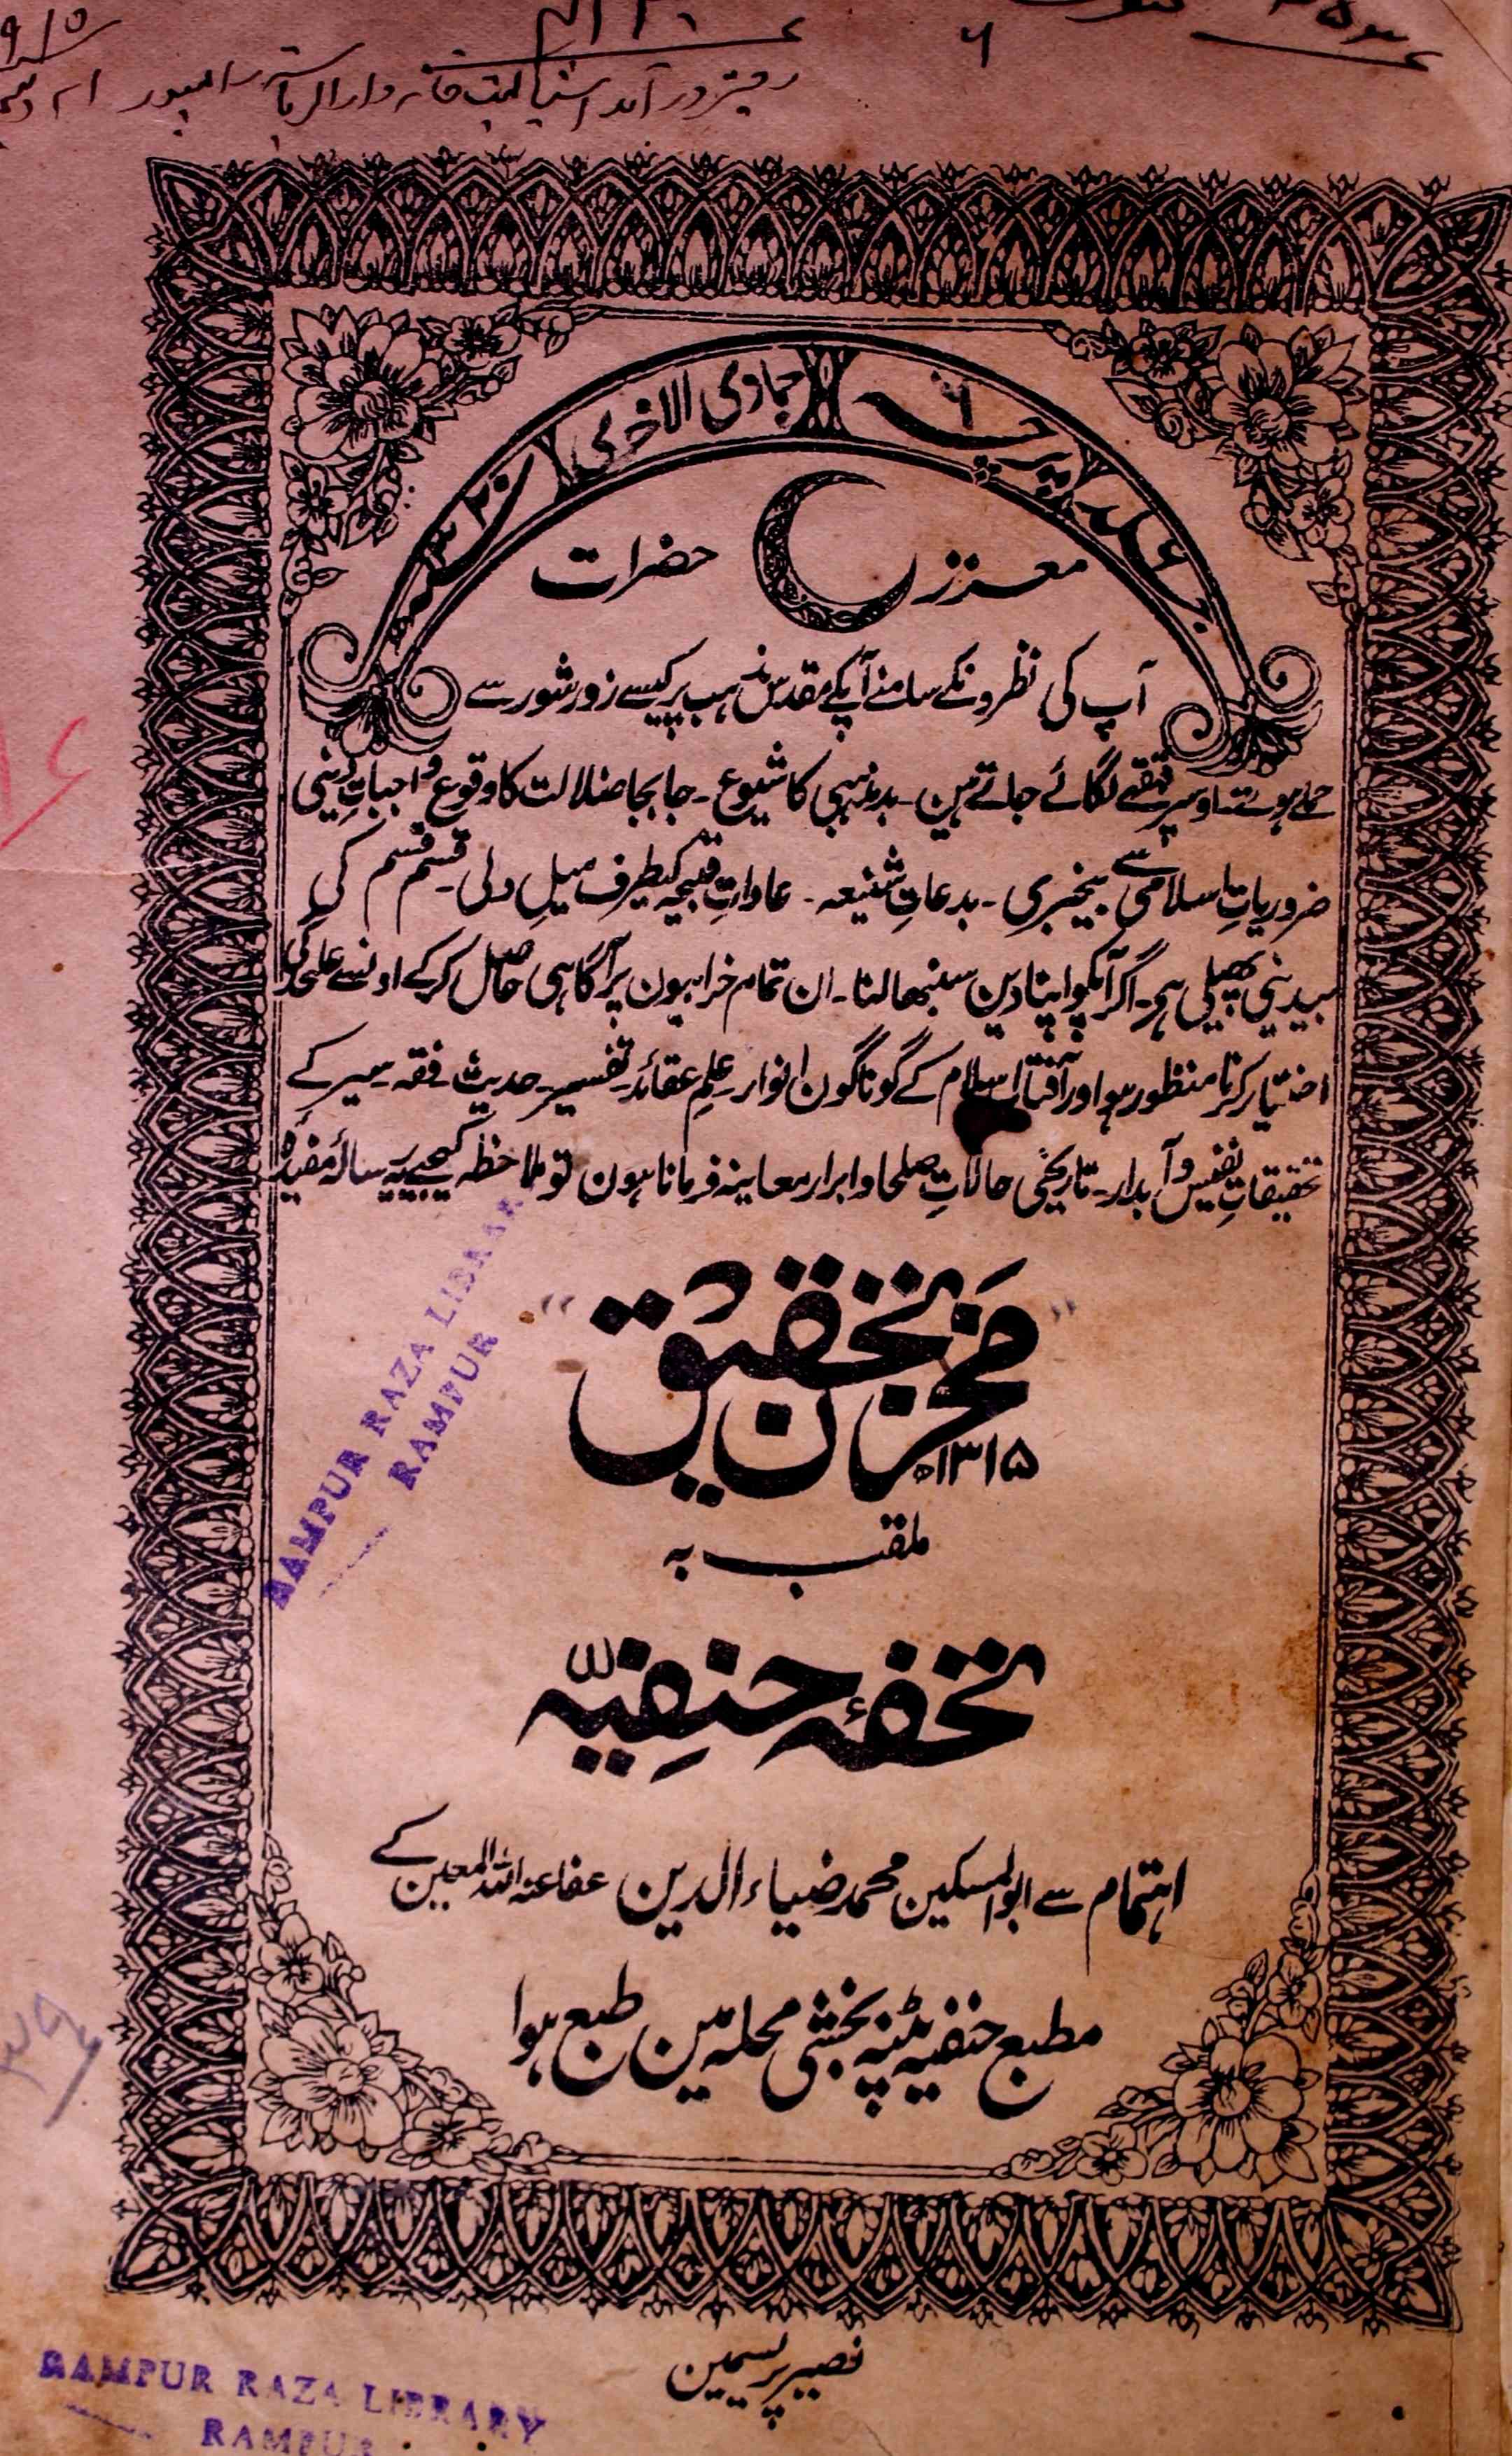 دفتر در آمد اشیا کتب خانہ دار الریاست رامپور
۶
جلد
پرچہ ۶
جمادی الاخری
۱۳۲۰
معزز حضرات
آپ کی نظرونکے سامنے آپکے مقدس مذہب پر کیسے زور شور سے
حملے ہوتے اوسپر قہقہے لگائے جاتے ہین ۔ بدمذہبی کا شیوع ۔ جابجا ضلالت کا وقوع واجباتِ دینی
ضروریاتِ اسلامی سے بیخبری ۔ بدعاتِ شنیعہ ۔ عاداتِ قبیحہ کیطرف میلِ دلی ۔ قسم قسم کی
بیدینی پھیلی ہے ۔ اگر آپکو اپنا دین سنبھالنا ۔ ان تمام خرابیون پر آگاہی حاصل کرکے اونسے علیحدگی
اختیار کرنا منظور ہو اور آفتابِ اسلام کے گوناگون انوار ۔ علمِ عقائد ۔ تفسیر ۔ حدیث ۔ فقہ ۔ سیر کے
تحقیقاتِ نفیس و آبدار ۔ تاریخی حالاتِ صلحا و ابرار معاینہ فرمانا ہون تو ملاحظہ کیجیے یہ رسالۂ مفیدہ
مخزن تحقیق
۱۳۱۵ھ
ملقب بہ
تحفۂ حنفیہ
اہتمام سے ابوالمسکین محمد ضیاء الدین عفا عنہ اللہ المعین کے
مطبع حنفیہ پٹنہ بخشی محلہ مین طبع ہوا
نصیر پریسمین
RAMPUR RAZA LIBRARY
RAMPUR
RAMPUR RAZA LIBRARY
RAMPUR